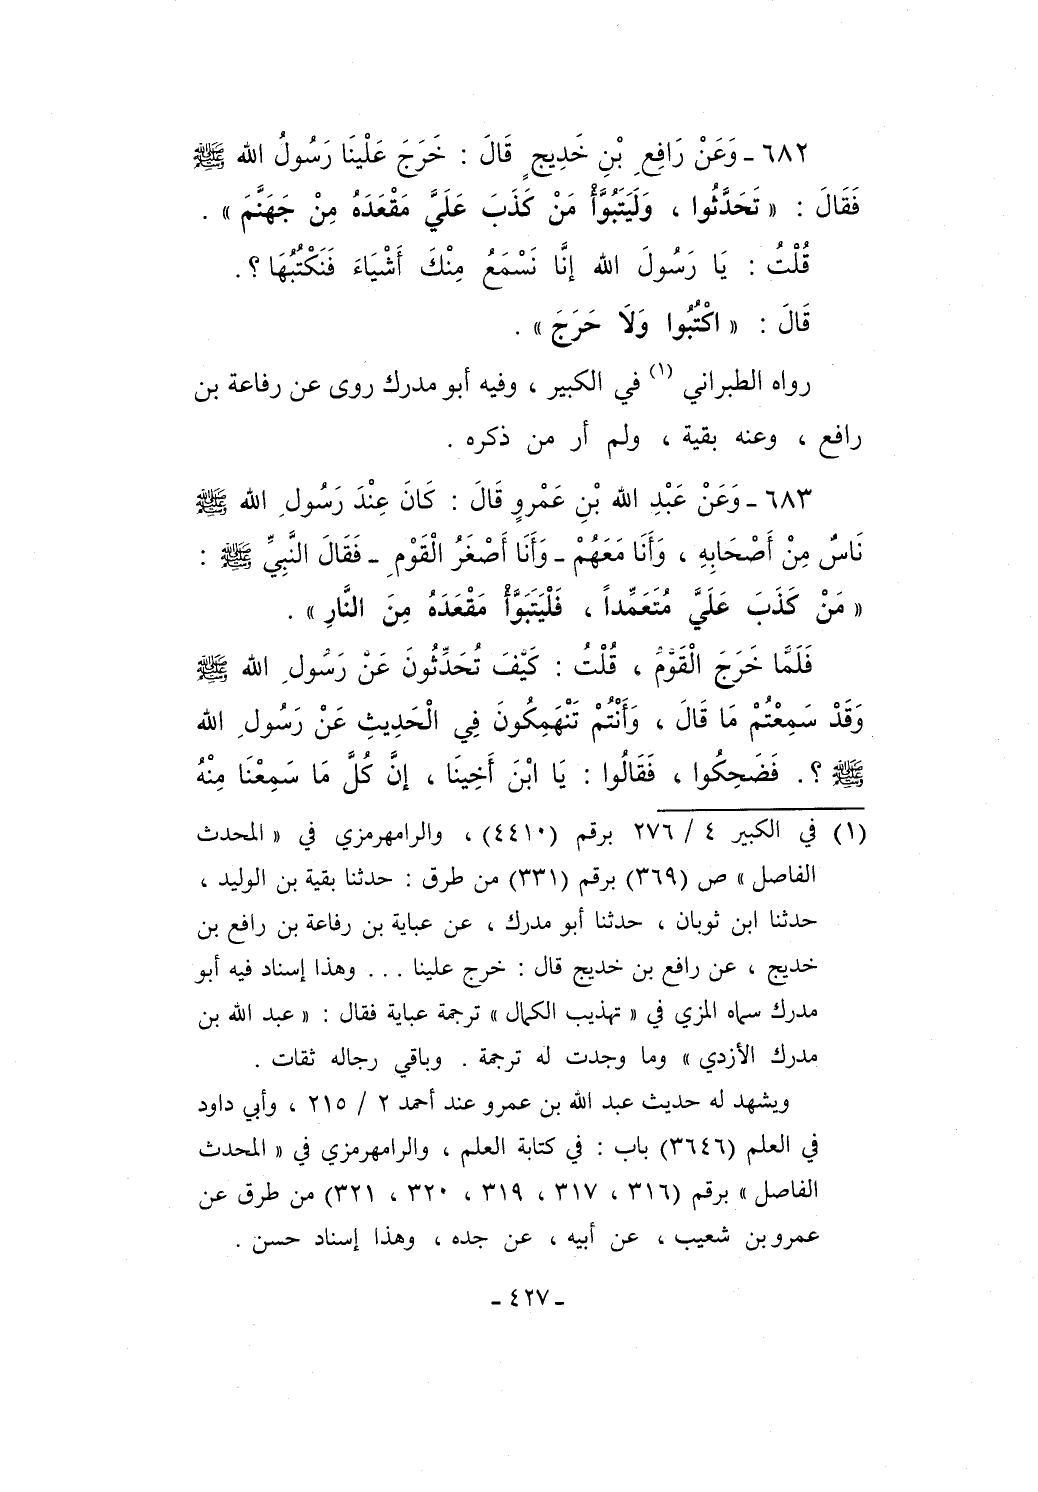 ٦٨٢ ـ وَعَنْ رَافِعِ بْنِ خَدِيجٍ قَالَ : خَرَجَ عَلَيْنَا رَسُولُ الله ﷺ
فَقَالَ : « تَحَدَّثُوا ، وَلَيَتَبَوَّأْ مَنْ كَذَبَ عَلَيَّ مَقْعَدَهُ مِنْ جَهَنَّمَ » .
قُلْتُ : يَا رَسُولَ الله إنَّا نَسْمَعُ مِنْكَ أَشْيَاءَ فَنَكْتُبُهَا ؟ .
قَالَ : « اكْتُبُوا وَلاَ حَرَجَ » .
رواه الطبراني (١) في الكبير ، وفيه أبو مدرك روى عن رفاعة بن
رافع ، وعنه بقية ، ولم أر من ذكره .
٦٨٣ ـ وَعَنْ عَبْدِ الله بْنِ عَمْرٍو قَالَ : كَانَ عِنْدَ رَسُولِ الله ﷺ
نَاسٌ مِنْ أَصْحَابِهِ ، وَأَنَا مَعَهُمْ ـ وَأَنَا أَصْغَرُ الْقَوْمِ ـ فَقَالَ النَّبِيِّ ﷺ :
« مَنْ كَذَبَ عَلَيَّ مُتَعَمِّداً ، فَلْيَتَبَوَّأْ مَقْعَدَهُ مِنَ النَّارِ » .
فَلَمَّا خَرَجَ الْقَوْمُ ، قُلْتُ : كَيْفَ تُحَدِّثُونَ عَنْ رَسُولِ الله ﷺ
وَقَدْ سَمِعْتُمْ مَا قَالَ ، وَأَنْتُمْ تَنْهَمِكُونَ فِي الْحَدِيثِ عَنْ رَسُولِ الله
ﷺ ؟ . فَضَحِكُوا ، فَقَالُوا : يَا ابْنَ أَخِينَا ، إنَّ كُلَّ مَا سَمِعْنَا مِنْهُ
(١) في الكبير ٤ / ٢٧٦ برقم (٤٤١٠) ، والرامهرمزي في « المحدث
الفاصل » ص (٣٦٩) برقم (٣٣١) من طرق : حدثنا بقية بن الوليد ،
حدثنا ابن ثوبان ، حدثنا أبو مدرك ، عن عباية بن رفاعة بن رافع بن
خديج ، عن رافع بن خديج قال : خرج علينا ... وهذا إسناد فيه أبو
مدرك سماه المزي في « تهذيب الكمال » ترجمة عباية فقال : « عبد الله بن
مدرك الأزدي » وما وجدت له ترجمة . وباقي رجاله ثقات .
ويشهد له حديث عبد الله بن عمرو عند أحمد ٢ / ٢١٥ ، وأبي داود
في العلم (٣٦٤٦) باب : في كتابة العلم ، والرامهرمزي في « المحدث
الفاصل » برقم (٣١٦ ، ٣١٧ ، ٣١٩ ، ٣٢٠ ، ٣٢١) من طرق عن
عمرو بن شعيب ، عن أبيه ، عن جده ، وهذا إسناد حسن .
ـ ٤٢٧ ـ